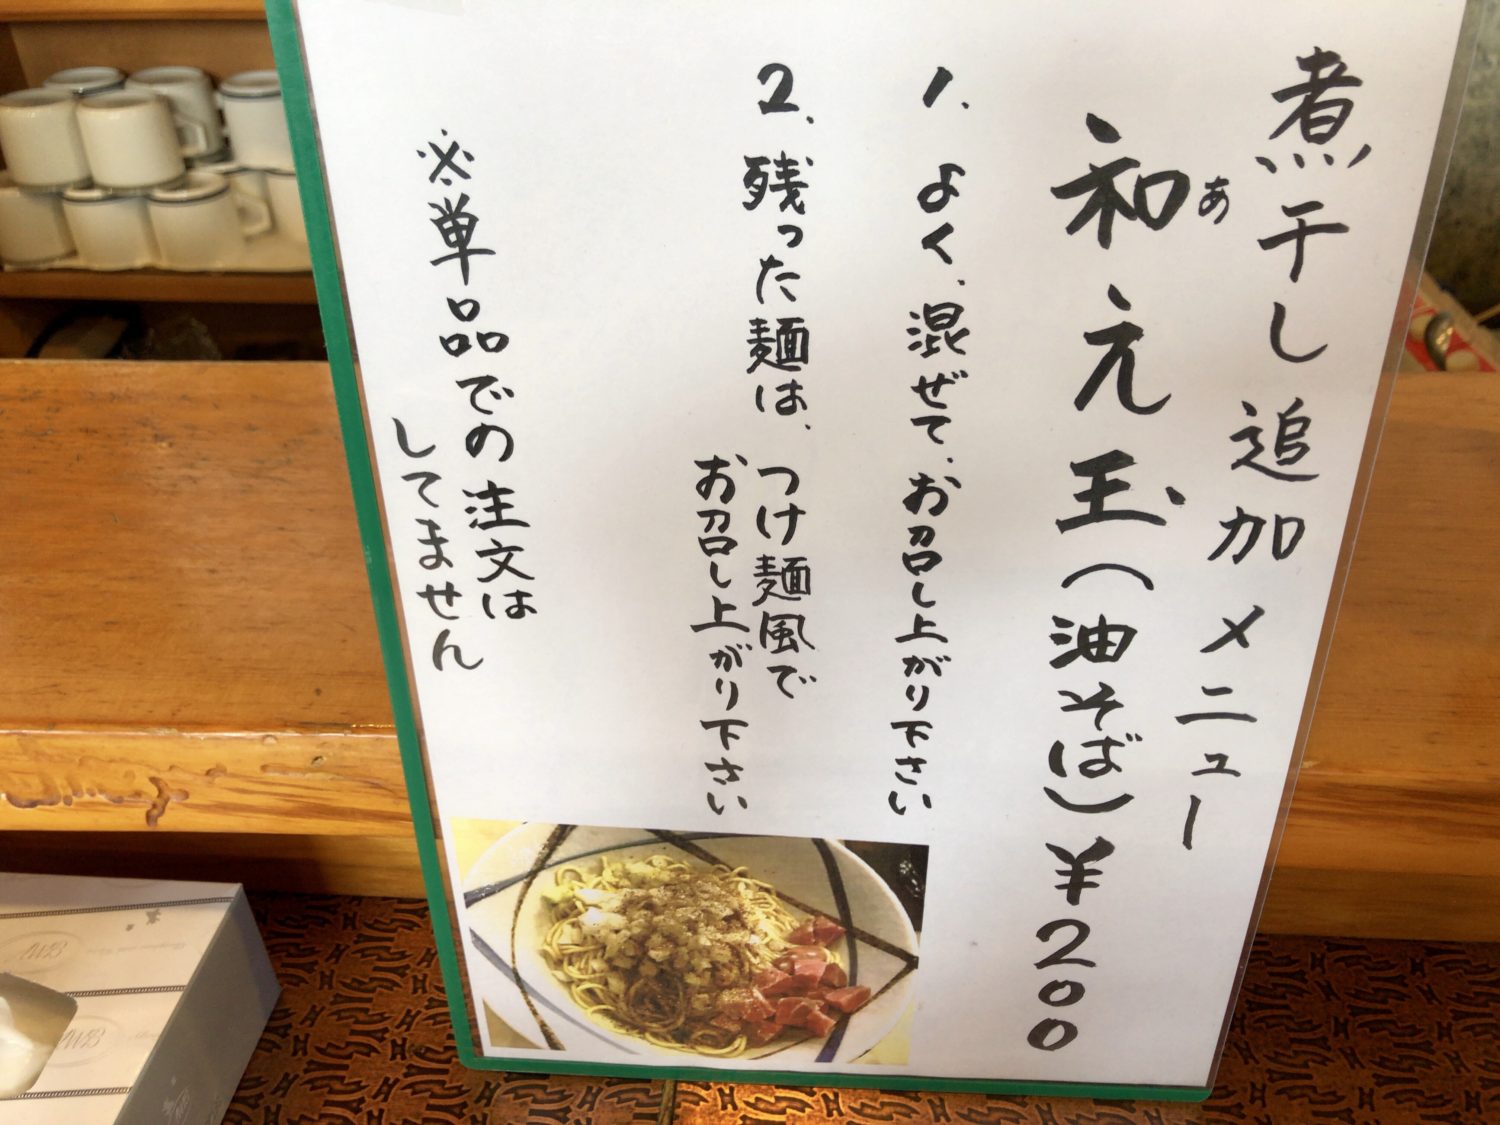 煮干し追加メニュー
和え玉(油そば)¥200
あ
1. よく、混ぜて、お召し上がり下さい
2. 残った麺は、
つけ麺風で
お召し上がり下さい
※単品での注文は
してません